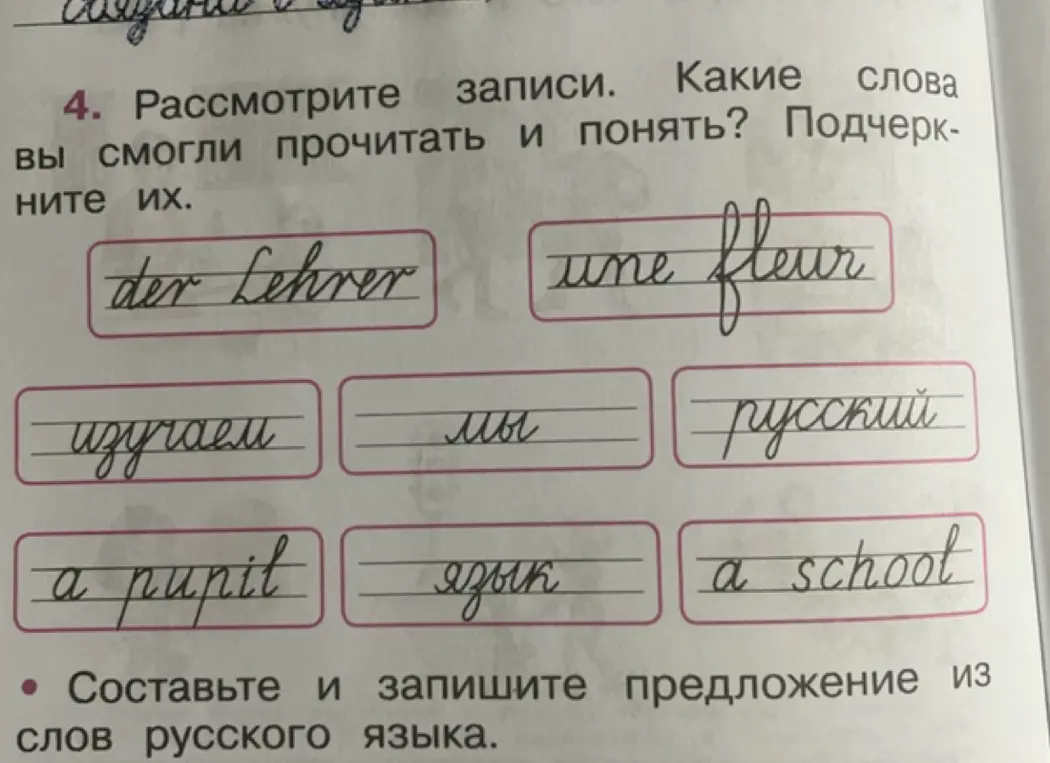 4. Рассмотрите записи. Какие слова
вы смогли прочитать и понять? Подчерк-
ните их.
der Lehrer une fleur
изучаем мы русский
a pupil язык a school
• Составьте и запишите предложение из
слов русского языка.